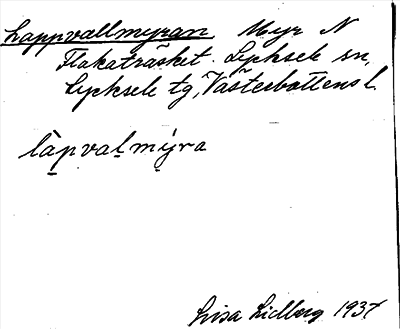 Lappvallmyran Myr N
Flakaträsket. Lycksele sn,
Lycksele tg, Västerbottens l.
làpvaḷmýra
Lisa Lidberg 1937